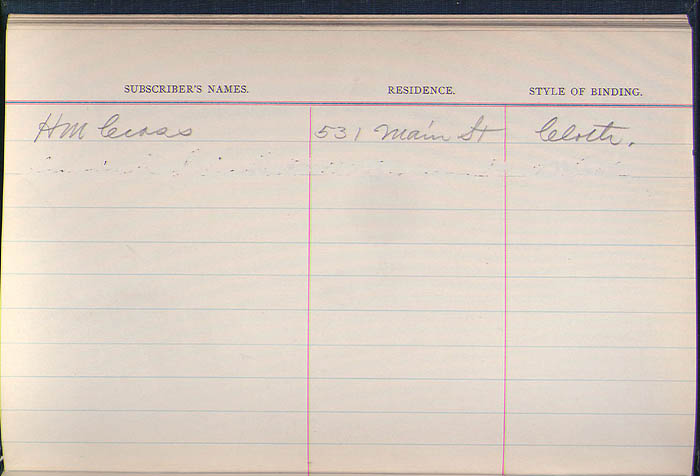 SUBSCRIBER'S NAMES. RESIDENCE. STYLE OF BINDING.
HM Cross 531 Main St Cloth.